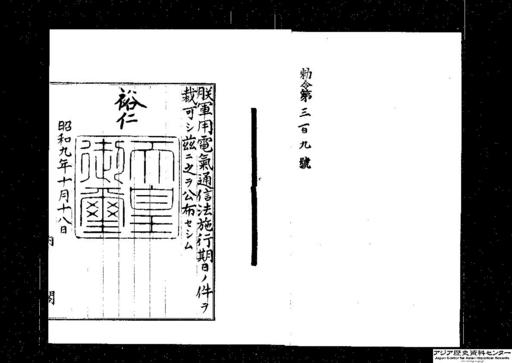 勅令第三百九號
朕軍用電氣通信法施行期日ノ件ヲ
裁可シ茲ニ之ヲ公布セシム
裕仁
天皇
御璽
昭和九年十月十八日
内閣
アジア歴史資料センター
Japan Center for Asian Historical Records